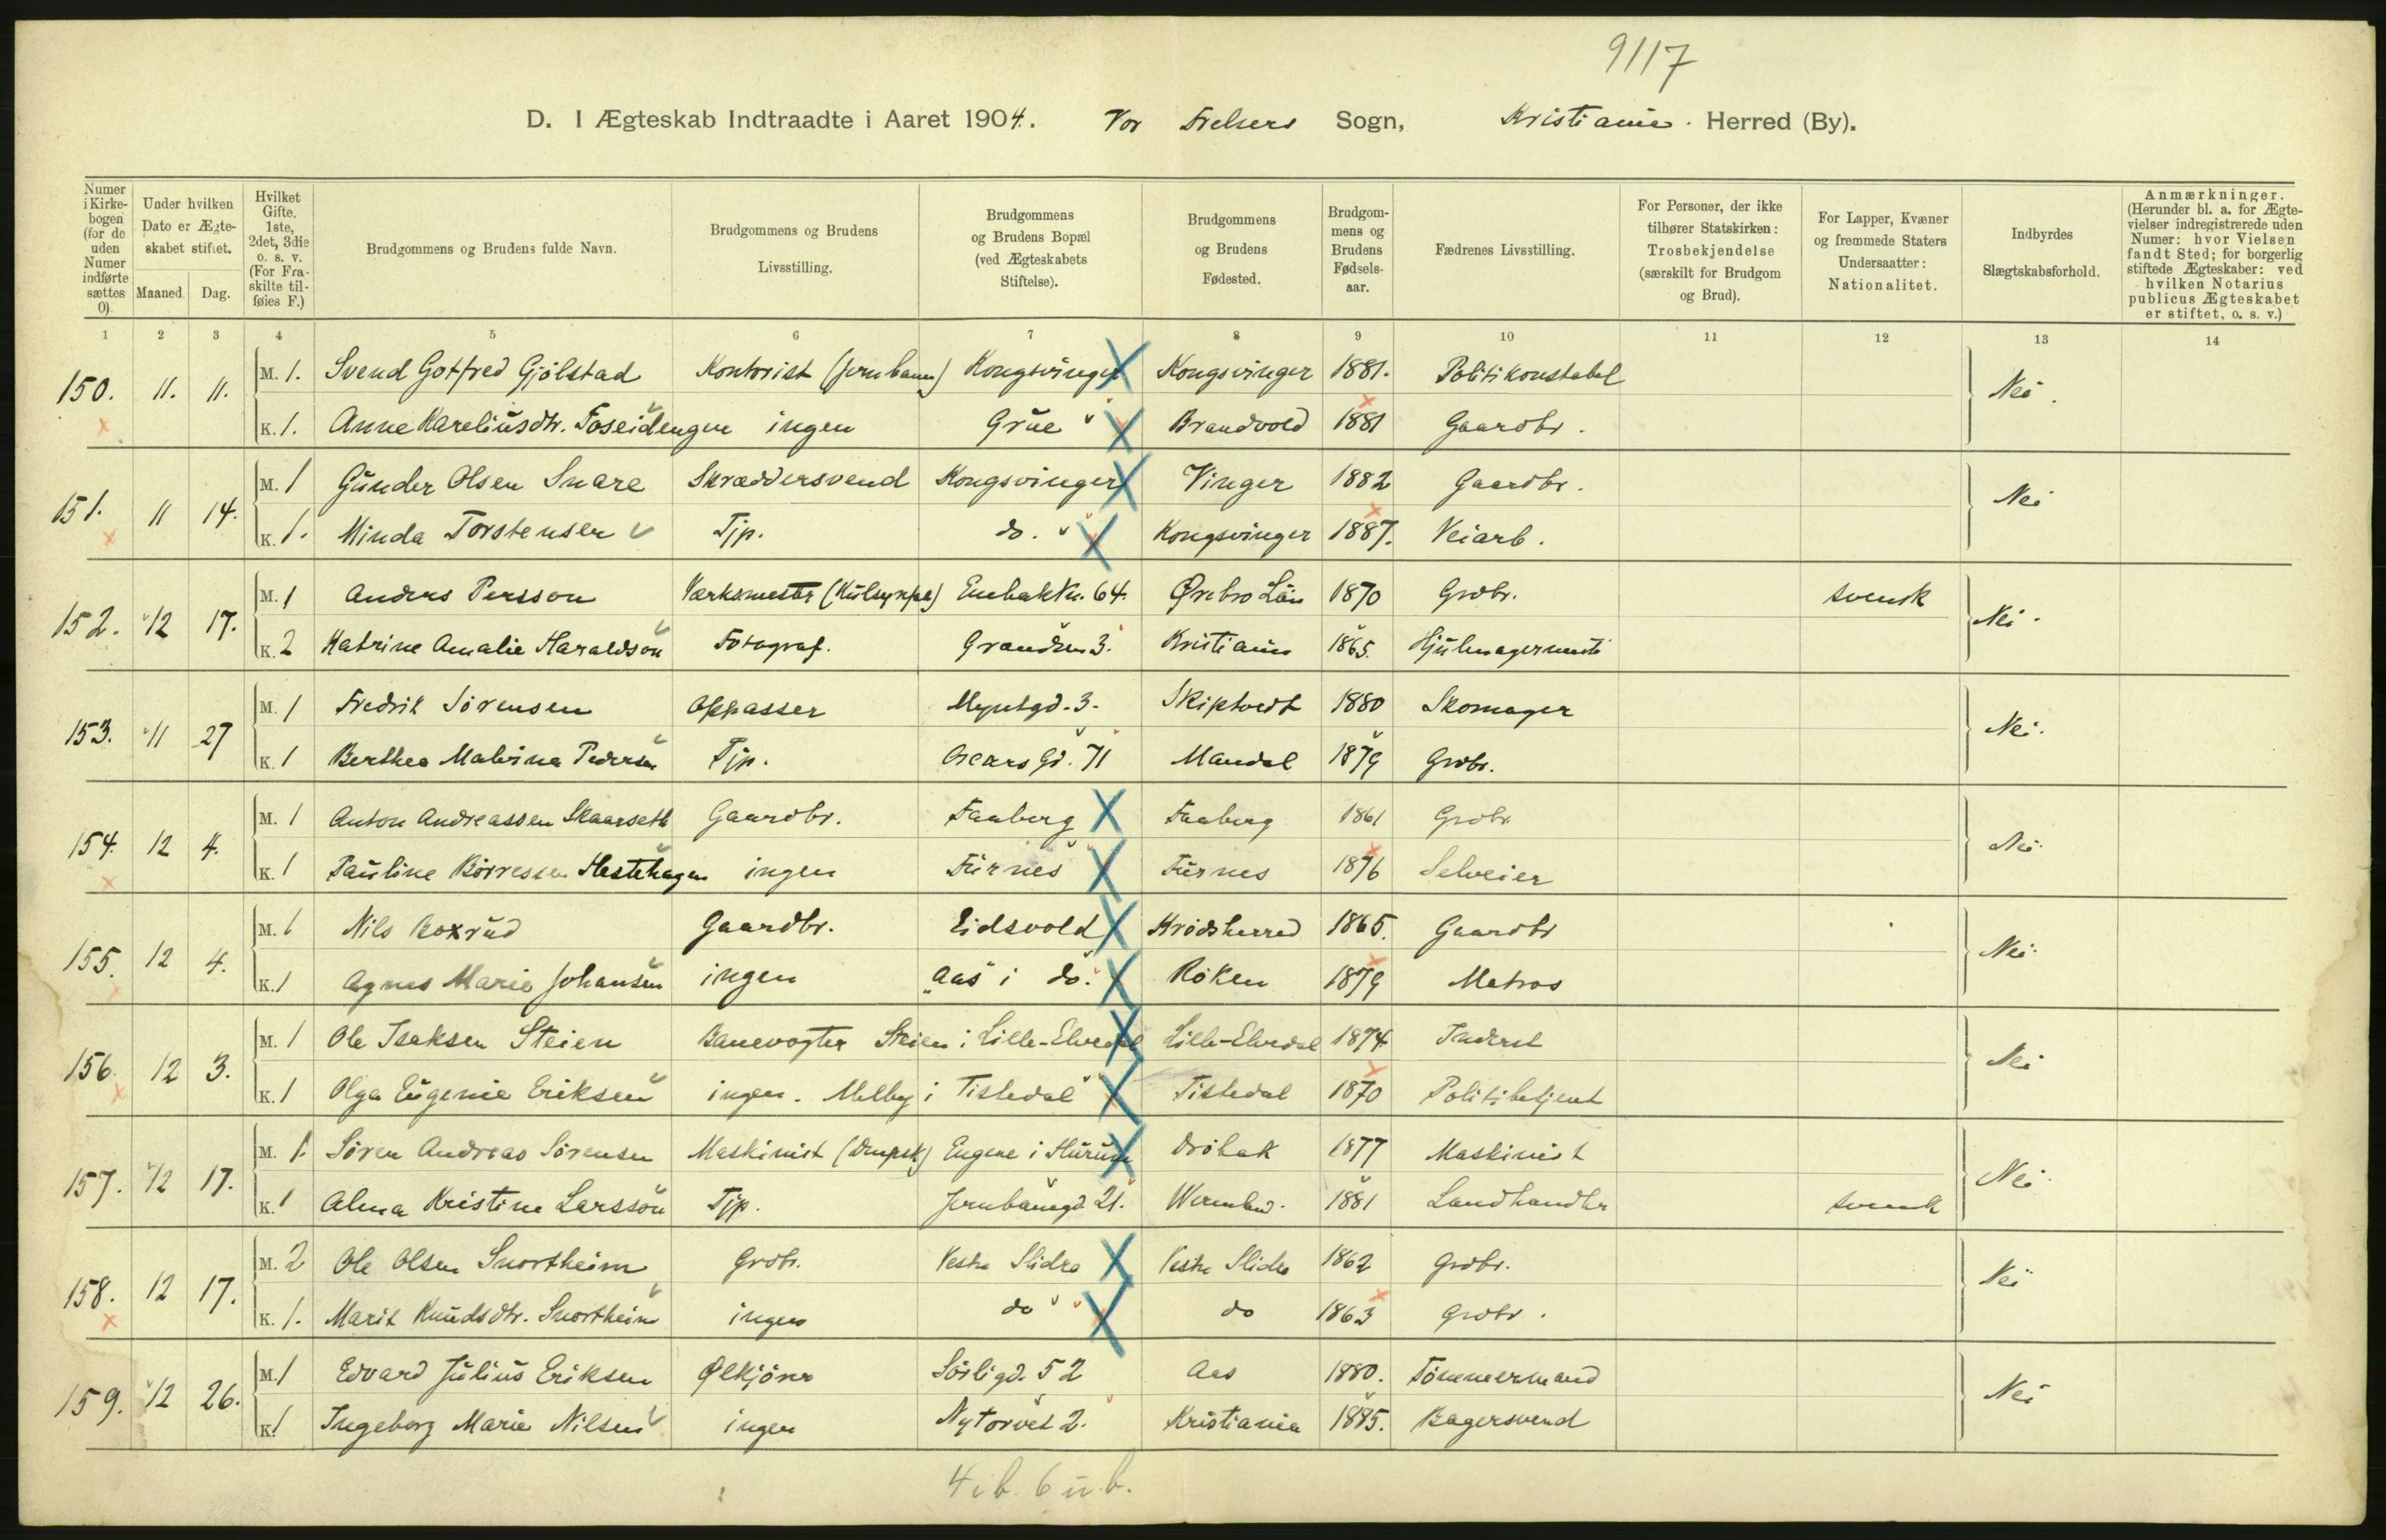 9117
D. I Ægteskab Indtraadte i Aaret 1904. Vor Frelsers Sogn, Kristiania. Herred (By).
Numer i Kirkebogen (for de uden Numer indførte sættes 0).
Under hvilken Dato er Ægteskabet stiftet.
Maaned. Dag.
Hvilket Gifte. 1ste, 2det, 3die o. s. v. (For Fraskilte tilføies F.)
Brudgommens og Brudens fulde Navn.
Brudgommens og Brudens Livsstilling.
Brudgommens og Brudens Bopæl (ved Ægteskabets Stiftelse).
Brudgommens og Brudens Fødested.
Brudgommens og Brudens Fødselsaar.
Fædrenes Livsstilling.
For Personer, der ikke tilhører Statskirken: Trosbekjendelse (særskilt for Brudgom og Brud).
For Lapper, Kvæner og fremmede Staters Undersaatter: Nationalitet.
Indbyrdes Slægtskabsforhold.
Anmærkninger. (Herunder bl. a. for Ægtevielser indregistrerede uden Numer: hvor Vielsen fandt Sted; for borgerlig stiftede Ægteskaber: ved hvilken Notarius publicus Ægteskabet er stiftet, o. s. v.)
1 2 3 4 5 6 7 8 9 10 11 12 13 14
150. 11. 11. M. 1. Svend Gotfred Gjölstad Kontorist (Jernbanen) Kongsvinger Kongsvinger 1881. Politikonstabel Nei.
K. 1. Anne Kareliusdtr. Foseidengen ingen Grue Brandvold 1881 Gaardbr.
151. 11 14. M. 1 Gunder Olsen Snare Skræddersvend Kongsvinger Vinger 1882 Gaardbr. Nei
K. 1. Minda Torstensen Tjp. do. Kongsvinger 1887. Veiarb.
152. 12 17. M. 1 Anders Persson Værksmester Enebakkv. 64. Ørebro Län 1870 Grdbr. svensk Nei.
K. 2 Katrine Amalie Haraldson Fotograf. Grændsen 3. Kristiania 1865. Hjulmagermester
153. 11 27 M. 1 Fredrik Sörensen Oppasser Myntgd. 3. Skiptvedt 1880 Skomager Nei.
K. 1 Berthea Malvina Pedersen Tjp. Oscars Gd. 71 Mandal 1879 Grdbr.
154. 12 4. M. 1 Anton Andreassen Skaarseth Gaardbr. Faaberg Faaberg 1861 Grdbr. Nei.
K. 1 Pauline Börresen Hestehagen ingen Furnes Furnes 1876 Selveier
155. 12 4. M. 1 Nils Boxrud Gaardbr. Eidsvold Krödsherred 1865. Gaardbr Nei.
K. 1 Agnes Marie Johansen ingen Aas i do. Röken 1879 Matros
156. 12 3. M. 1 Ole Isaksen Steien Banevogter Steien i Lille-Elvedal Lille-Elvedal 1874 Inderst Nei
K. 1 Olga Eugenie Eriksen ingen. Melby i Tistedal Tistedal 1870 Politibetjent
157. 12 17. M. 1. Sören Andreas Sörensen Maskinist (Dampsk) Engene i Hurum Dröbak 1877 Maskinist Nei.
K. 1 Alma Kristine Larsson Tjp. Jernbanegd. 21. Wermland. 1881 Landhandler svensk
158. 12 17. M. 2 Ole Olsen Snortheim Grdbr. Vestre Slidre Vestre Slidre 1862 Grdbr. Nei
K. 1. Marit Knudsdtr. Snortheim ingen do do 1863 Grdbr.
159. 12 26. M. 1 Edvard Julius Eriksen Ølkjörer Sörligd. 52 Aas 1880. Tömmermand Nei
K. 1 Ingeborg Marie Nilsen ingen Nytorvet 2. Kristiania 1885. Bagersvend
4 i b. 6 u. b.